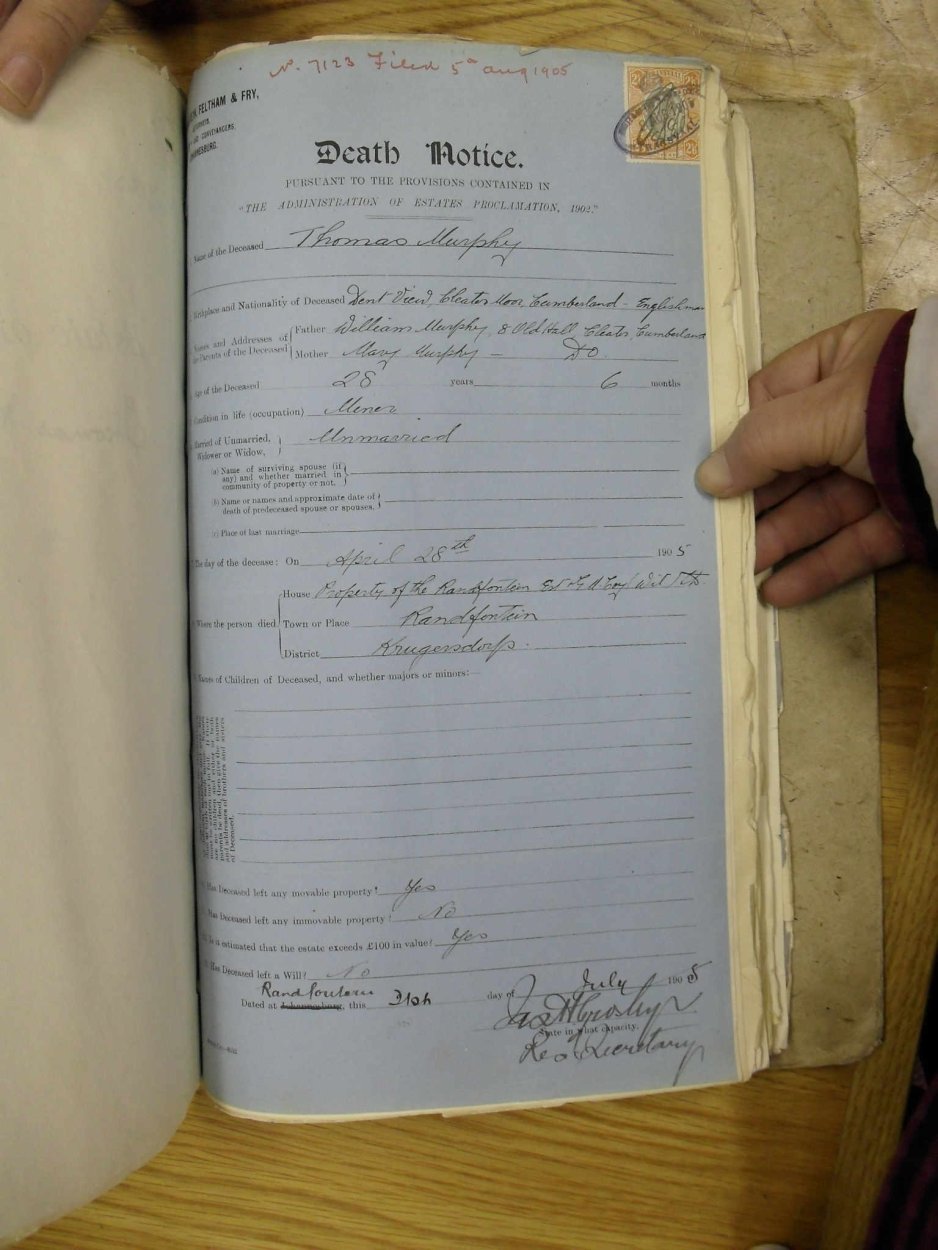 N. 7123 Filed 5th Aug 1905
FELTHAM & FRY,
CONVEYANCERS,
Death Notice.
PURSUANT TO THE PROVISIONS CONTAINED IN
"THE ADMINISTRATION OF ESTATES PROCLAMATION, 1902."
Name of the Deceased Thomas Murphy
Birthplace and Nationality of Deceased Dent View, Cleator Moor, Cumberland - Englishman
Names and Addresses of the Parents of the Deceased
Father William Murphy, 8 Old Hall, Cleator, Cumberland
Mother Mary Murphy - Do
Age of the Deceased 28 years 6 months
Condition in life (occupation) Miner
Married of Unmarried, Widower or Widow, Unmarried
(a) Name of surviving spouse (if
any) and whether married in
community of property or not.
(b) Name or names and approximate date of
death of predeceased spouse or spouses.
(c) Place of last marriage
The day of the decease: On April 28th 1905
Where the person died
House Property of the Randfontein Est
Town or Place Randfontein
District Krugersdorp.
Names of Children of Deceased, and whether majors or minors:
parents be dead, then give the names
and addresses of brothers and sisters
of Deceased.
Has Deceased left any movable property? Yes
Has Deceased left any immovable property? No
Is it estimated that the estate exceeds £100 in value? Yes
Has Deceased left a Will? No
Randfontein
Dated at Johannesburg, this 31st day of July 1905
Jas H Crosby
State in what capacity.
Secretary